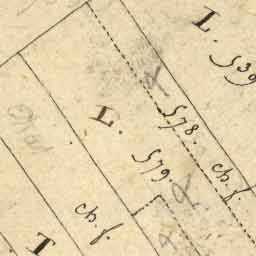 L. 539
578. ch. f.
L. 579
ch. f.
T